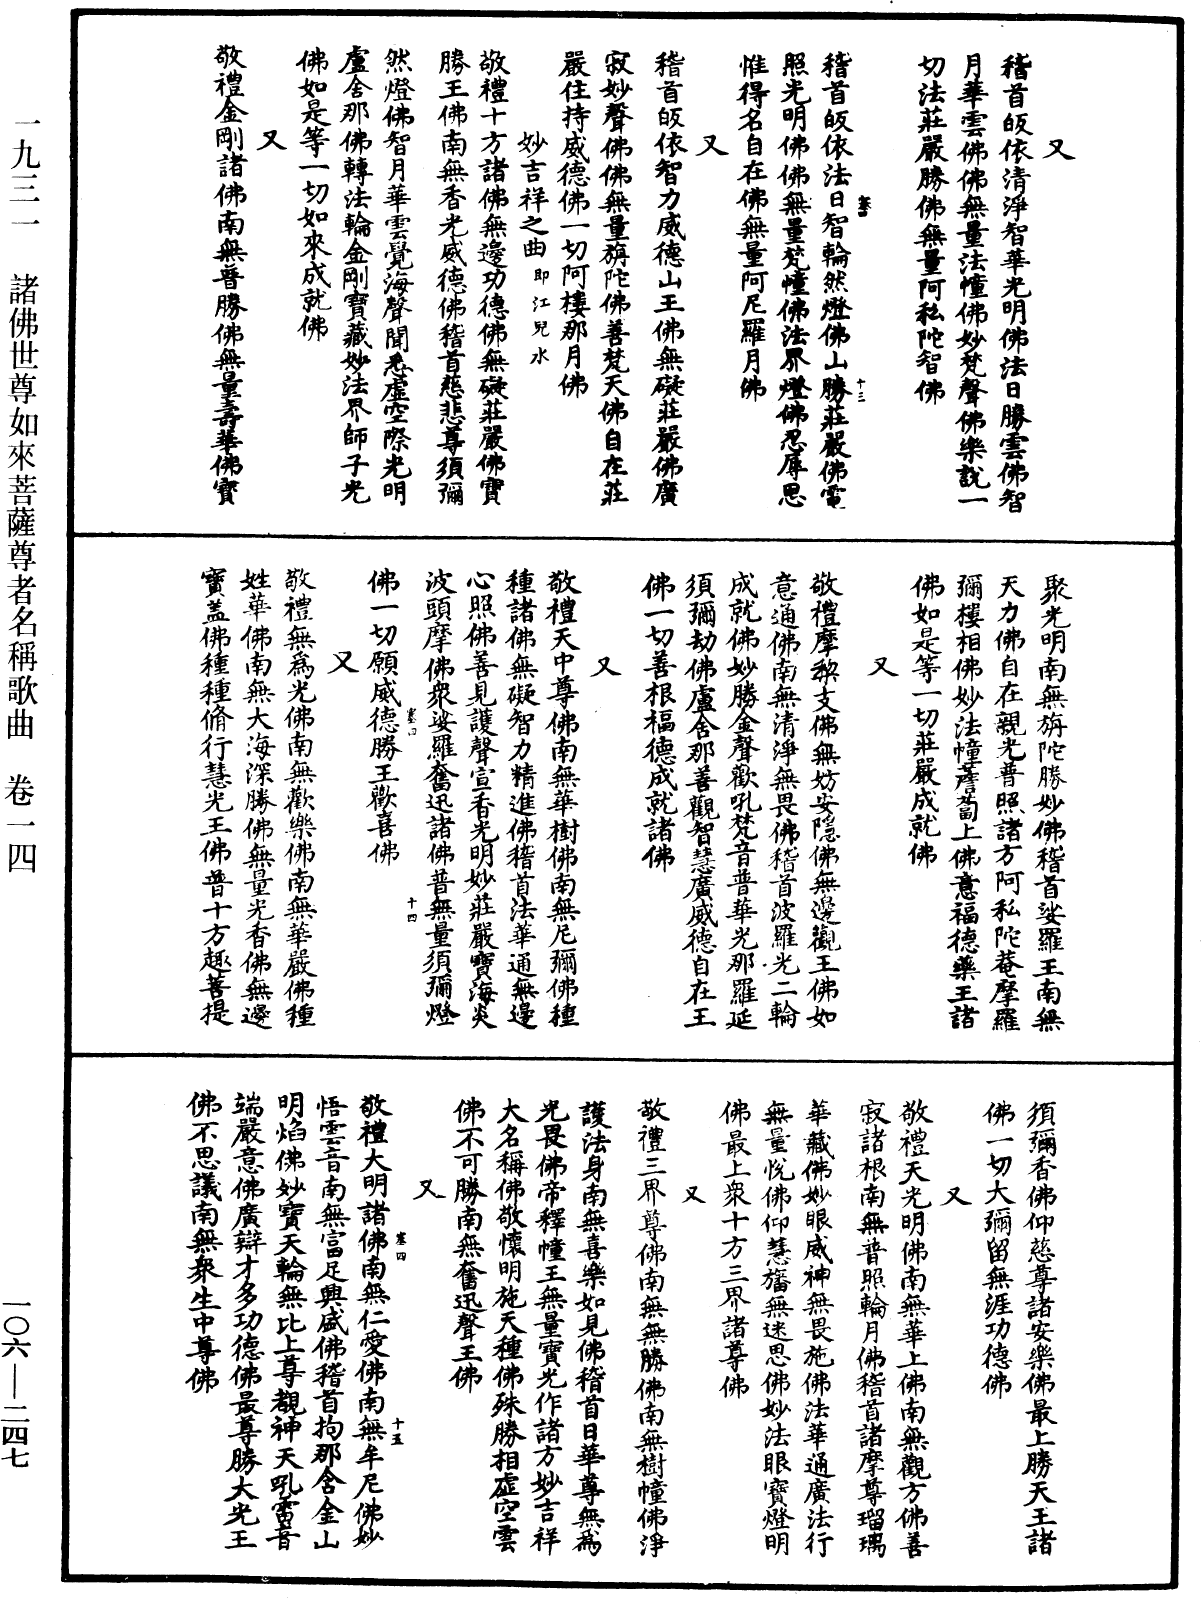 一九三一 諸佛世尊如來菩薩尊者名稱歌曲 卷一四
一〇六—二四七
又
稽首皈依清淨智華光明佛法日勝雲佛智
月華雲佛佛無量法幢佛妙梵聲佛樂說一
切法莊嚴勝佛無量阿私陀智佛
稽首皈依法日智輪然燈佛山勝莊嚴佛電
照光明佛佛無量梵幢佛法界燈佛忍辱思
惟得名自在佛無量阿尼羅月佛
又
稽首皈依智力威德山王佛無礙莊嚴佛廣
寂妙聲佛佛無量旃陀佛善梵天佛自在莊
嚴住持威德佛一切阿樓那月佛
妙吉祥之曲 即江兒水
敬禮十方諸佛無邊功德佛無礙莊嚴佛寶
勝王佛南無香光威德佛稽首慈悲尊須彌
然燈佛智月華雲覺海聲聞悉虛空際光明
盧舍那佛轉法輪金剛寶藏妙法界師子光
佛如是等一切如來成就佛
又
敬禮金剛諸佛南無普勝佛無量壽華佛寶
聚光明南無旃陀勝妙佛稽首娑羅王南無
天力佛自在親光普照諸方阿私陀菴摩羅
彌樓相佛妙法幢薝蔔上佛意福德藥王諸
佛如是等一切莊嚴成就佛
又
敬禮摩黎支佛無妨安隱佛無邊觀王佛如
意通佛南無清淨無畏佛稽首波羅光二輪
成就佛妙勝金聲歡吼梵音普華光那羅延
須彌劫佛盧舍那善觀智慧廣威德自在王
佛一切善根福德成就諸佛
又
敬禮天中尊佛南無華樹佛南無尼彌佛種
種諸佛無礙智力精進佛稽首法華通無邊
心照佛善見護聲宣香光明妙莊嚴寶海炎
波頭摩佛眾娑羅奮迅諸佛普無量須彌燈
佛一切願威德勝王歡喜佛
又
敬禮無為光佛南無歡樂佛南無華嚴佛種
姓華佛南無大海深勝佛無量光香佛無邊
寶蓋佛種種脩行慧光王佛普十方趣菩提
須彌香佛仰慈尊諸安樂佛最上勝天王諸
佛一切大彌留無涯功德佛
又
敬禮天光明佛南無華上佛南無觀方佛善
寂諸根南無普照輪月佛稽首諸摩尊瑠璃
華藏佛妙眼威神無畏施佛法華通廣法行
無量悅佛仰慧旛無迷思佛妙法眼寶燈明
佛最上眾十方三界諸尊佛
又
敬禮三界尊佛南無無勝佛南無樹幢佛淨
護法身南無喜樂如見佛稽首日華尊無為
光畏佛帝釋幢王無量寶光作諸方妙吉祥
大名稱佛敬懷明施天種佛殊勝相虛空雲
佛不可勝南無奮迅聲王佛
又
敬禮大明諸佛南無仁愛佛南無牟尼佛妙
悟雲音南無富足興盛佛稽首拘那含金山
明焰佛妙寶天輪無比上尊覩神天吼雷音
端嚴意佛廣辯才多功德佛最尊勝大光王
佛不思議南無眾生中尊佛